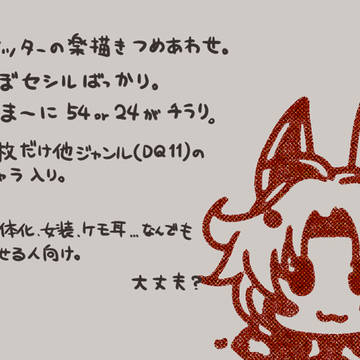 ッターの楽描きつめあわせ。
ぼセシルばっかり。
まーに54or24がチラリ。
枚だけ他ジャンル(DQ11)の
ャラ入り。
体化、女装、ケモ耳...なんでも
せる人向け。
大丈夫？